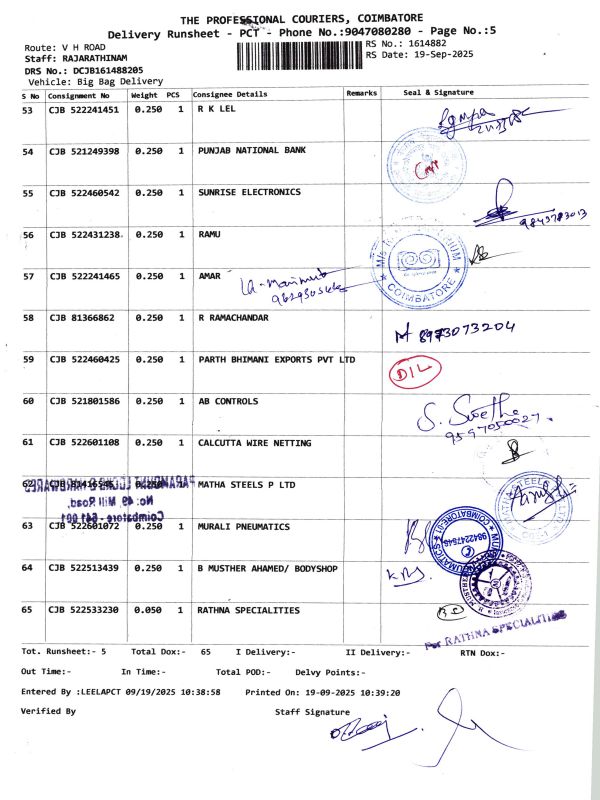 THE PROFESSIONAL COURIERS, COIMBATORE
Delivery Runsheet - PCT - Phone No.:9047080280 - Page No.:5
Route: V H ROAD
RS No.: 1614882
Staff: RAJARATHINAM
RS Date: 19-Sep-2025
DRS No.: DCJB161488205
Vehicle: Big Bag Delivery
S No Consignment No Weight PCS Consignee Details Remarks Seal & Signature
53 CJB 522241451 0.250 1 R K LEL
54 CJB 521249398 0.250 1 PUNJAB NATIONAL BANK
55 CJB 522460542 0.250 1 SUNRISE ELECTRONICS
9843783013
56 CJB 522431238 0.250 1 RAMU
COIMBATORE
57 CJB 522241465 0.250 1 AMAR
58 CJB 81366862 0.250 1 R RAMACHANDAR
8973073204
59 CJB 522460425 0.250 1 PARTH BHIMANI EXPORTS PVT LTD
D/L
60 CJB 521801586 0.250 1 AB CONTROLS
S. Swetha
9597050027
61 CJB 522601108 0.250 1 CALCUTTA WIRE NETTING
62 CJB 0.250 1 MATHA STEELS P LTD
No: 49, Mill Road,
Coimbatore - 641 001
63 CJB 522601072 0.250 1 MURALI PNEUMATICS
64 CJB 522513439 0.250 1 B MUSTHER AHAMED/ BODYSHOP
65 CJB 522533230 0.050 1 RATHNA SPECIALITIES
For RATHNA SPECIALITIES
Tot. Runsheet:- 5 Total Dox:- 65 I Delivery:- II Delivery:- RTN Dox:-
Out Time:- In Time:- Total POD:- Delvy Points:-
Entered By :LEELAPCT 09/19/2025 10:38:58 Printed On: 19-09-2025 10:39:20
Verified By Staff Signature